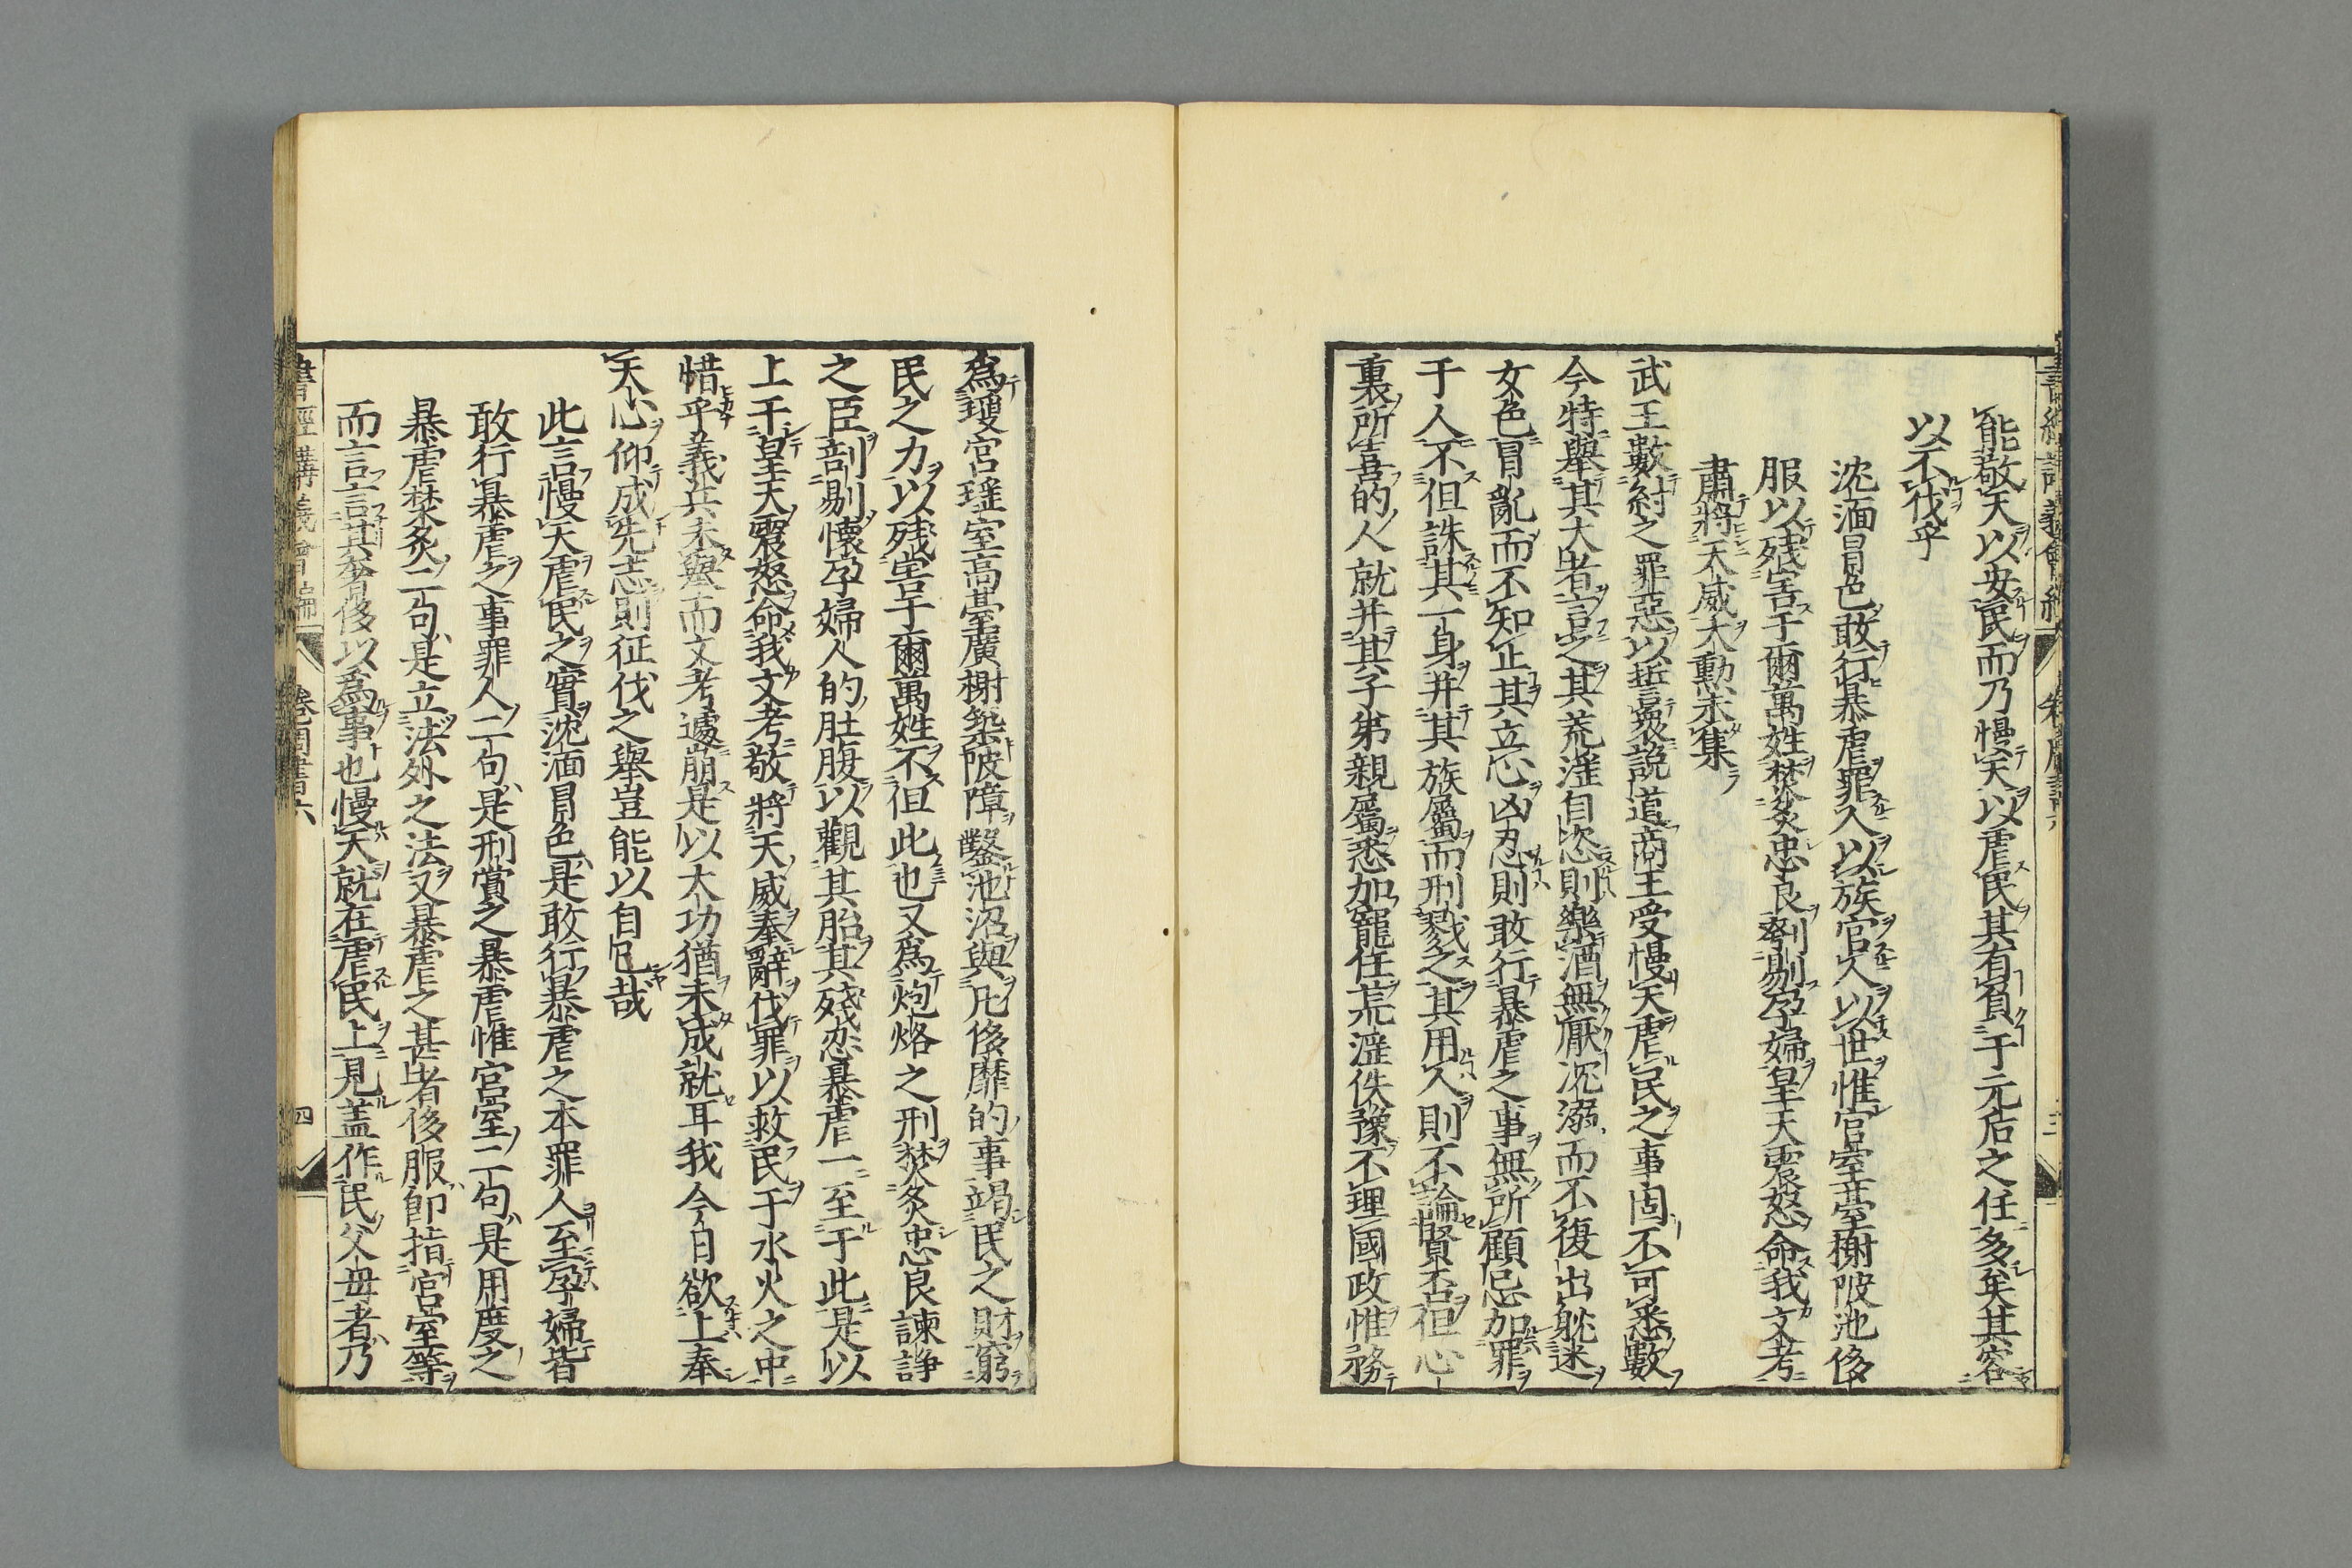 能敬天以安民而乃慢天以虐民其有負于元后之任多矣其容
以不伐乎
沈湎冒色敢行暴虐罪人以族官人以世惟宮室臺榭陂池侈
服以殘害于爾萬姓焚炙忠良刳剔孕婦皇天震怒命我文考
肅將天威大勳未集
武王數紂之罪惡以誓衆説道商王受慢天虐民之事固不可悉數
今特舉其大者言之其荒淫自恣則樂酒無厭沉溺而不復出躭迷
女色冒亂而不知止其立心凶忍則敢行暴虐之事無所顧忌加罪
于人不但誅其一身并其族屬而刑戮之其用人則不論賢否但心
裏所喜的人就并其子弟親屬悉加寵任荒淫佚豫不理國政惟務
爲瓊宮瑤室高臺廣榭築陂障鑿池沼與凡侈靡的事竭民之財窮
民之力以殘害于爾萬姓不但此也又爲炮烙之刑焚炙忠良諫諍
之臣剖剔懷孕婦人的肚腹以觀其胎其殘忍暴虐一至于此是以
上干皇天震怒命我文考敬將天威奉辭伐罪以救民于水火之中
惜乎義兵未舉而文考遽崩是以大功猶未成就耳我今日欲上奉
天心仰成先志則征伐之舉豈能以自已哉
此言慢天虐民之實沈湎冒色是敢行暴虐之本罪人至孕婦皆
敢行暴虐之事罪人二句是刑賞之暴虐惟宮室二句是用度之
暴虐焚炙二句是立法外之法又暴虐之甚者侈服卽指宮室等
而言言其奢侈以爲事也慢天就在虐民上見盖作民父母者乃
書經講義會編 卷周書六 四